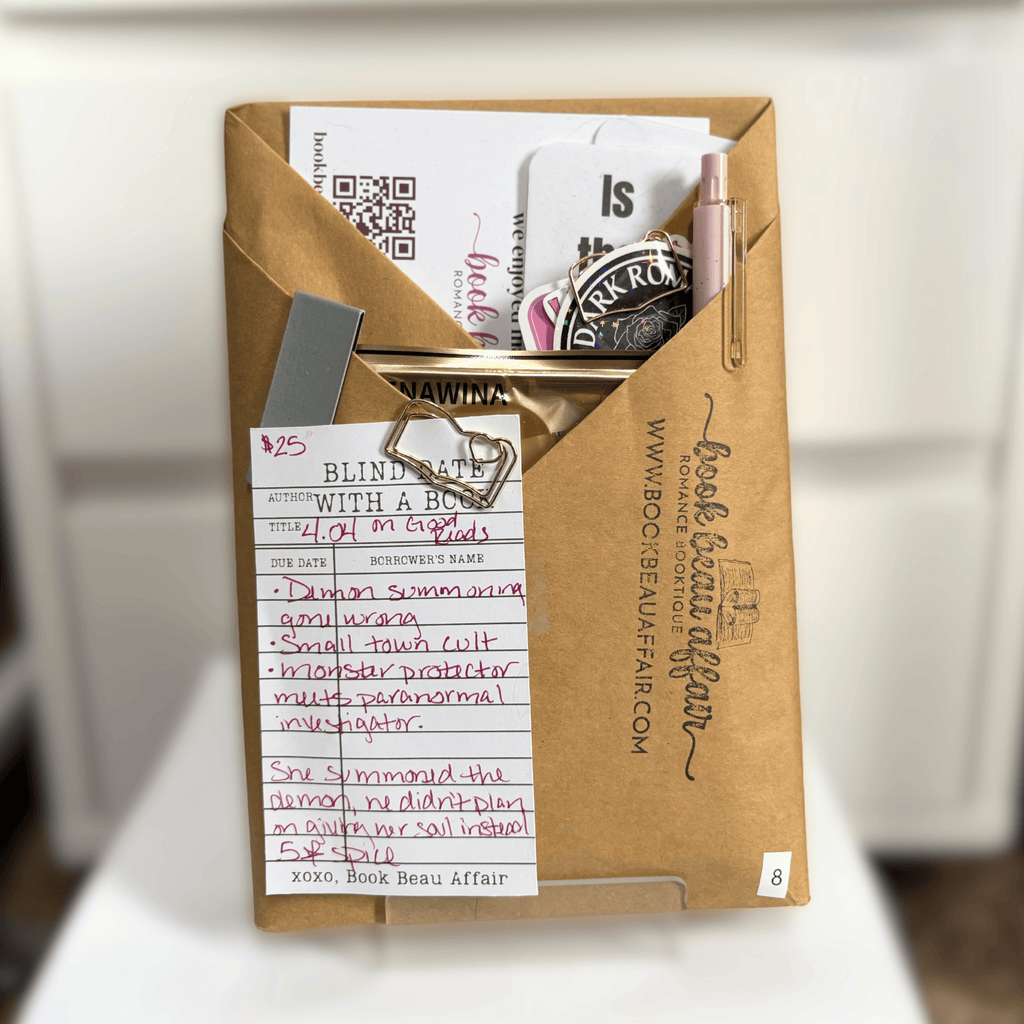 bookbe
book b
ROMANC
we enjoyed
Is
th
DARK ROM
NAWINA
$25
BLIND DATE
WITH A BOOK
AUTHOR
TITLE 4.04 on Good
Reads
DUE DATE BORROWER'S NAME
• Demon summoning
gone wrong
• Small town cult
• monster protector
meets paranormal
investigator.
She summoned the
demon, he didn't plan
on giving her soul instead
5* spice
xoxo, Book Beau Affair
book beau affair
ROMANCE BOOKTIQUE
WWW.BOOKBEAUAFFAIR.COM
8